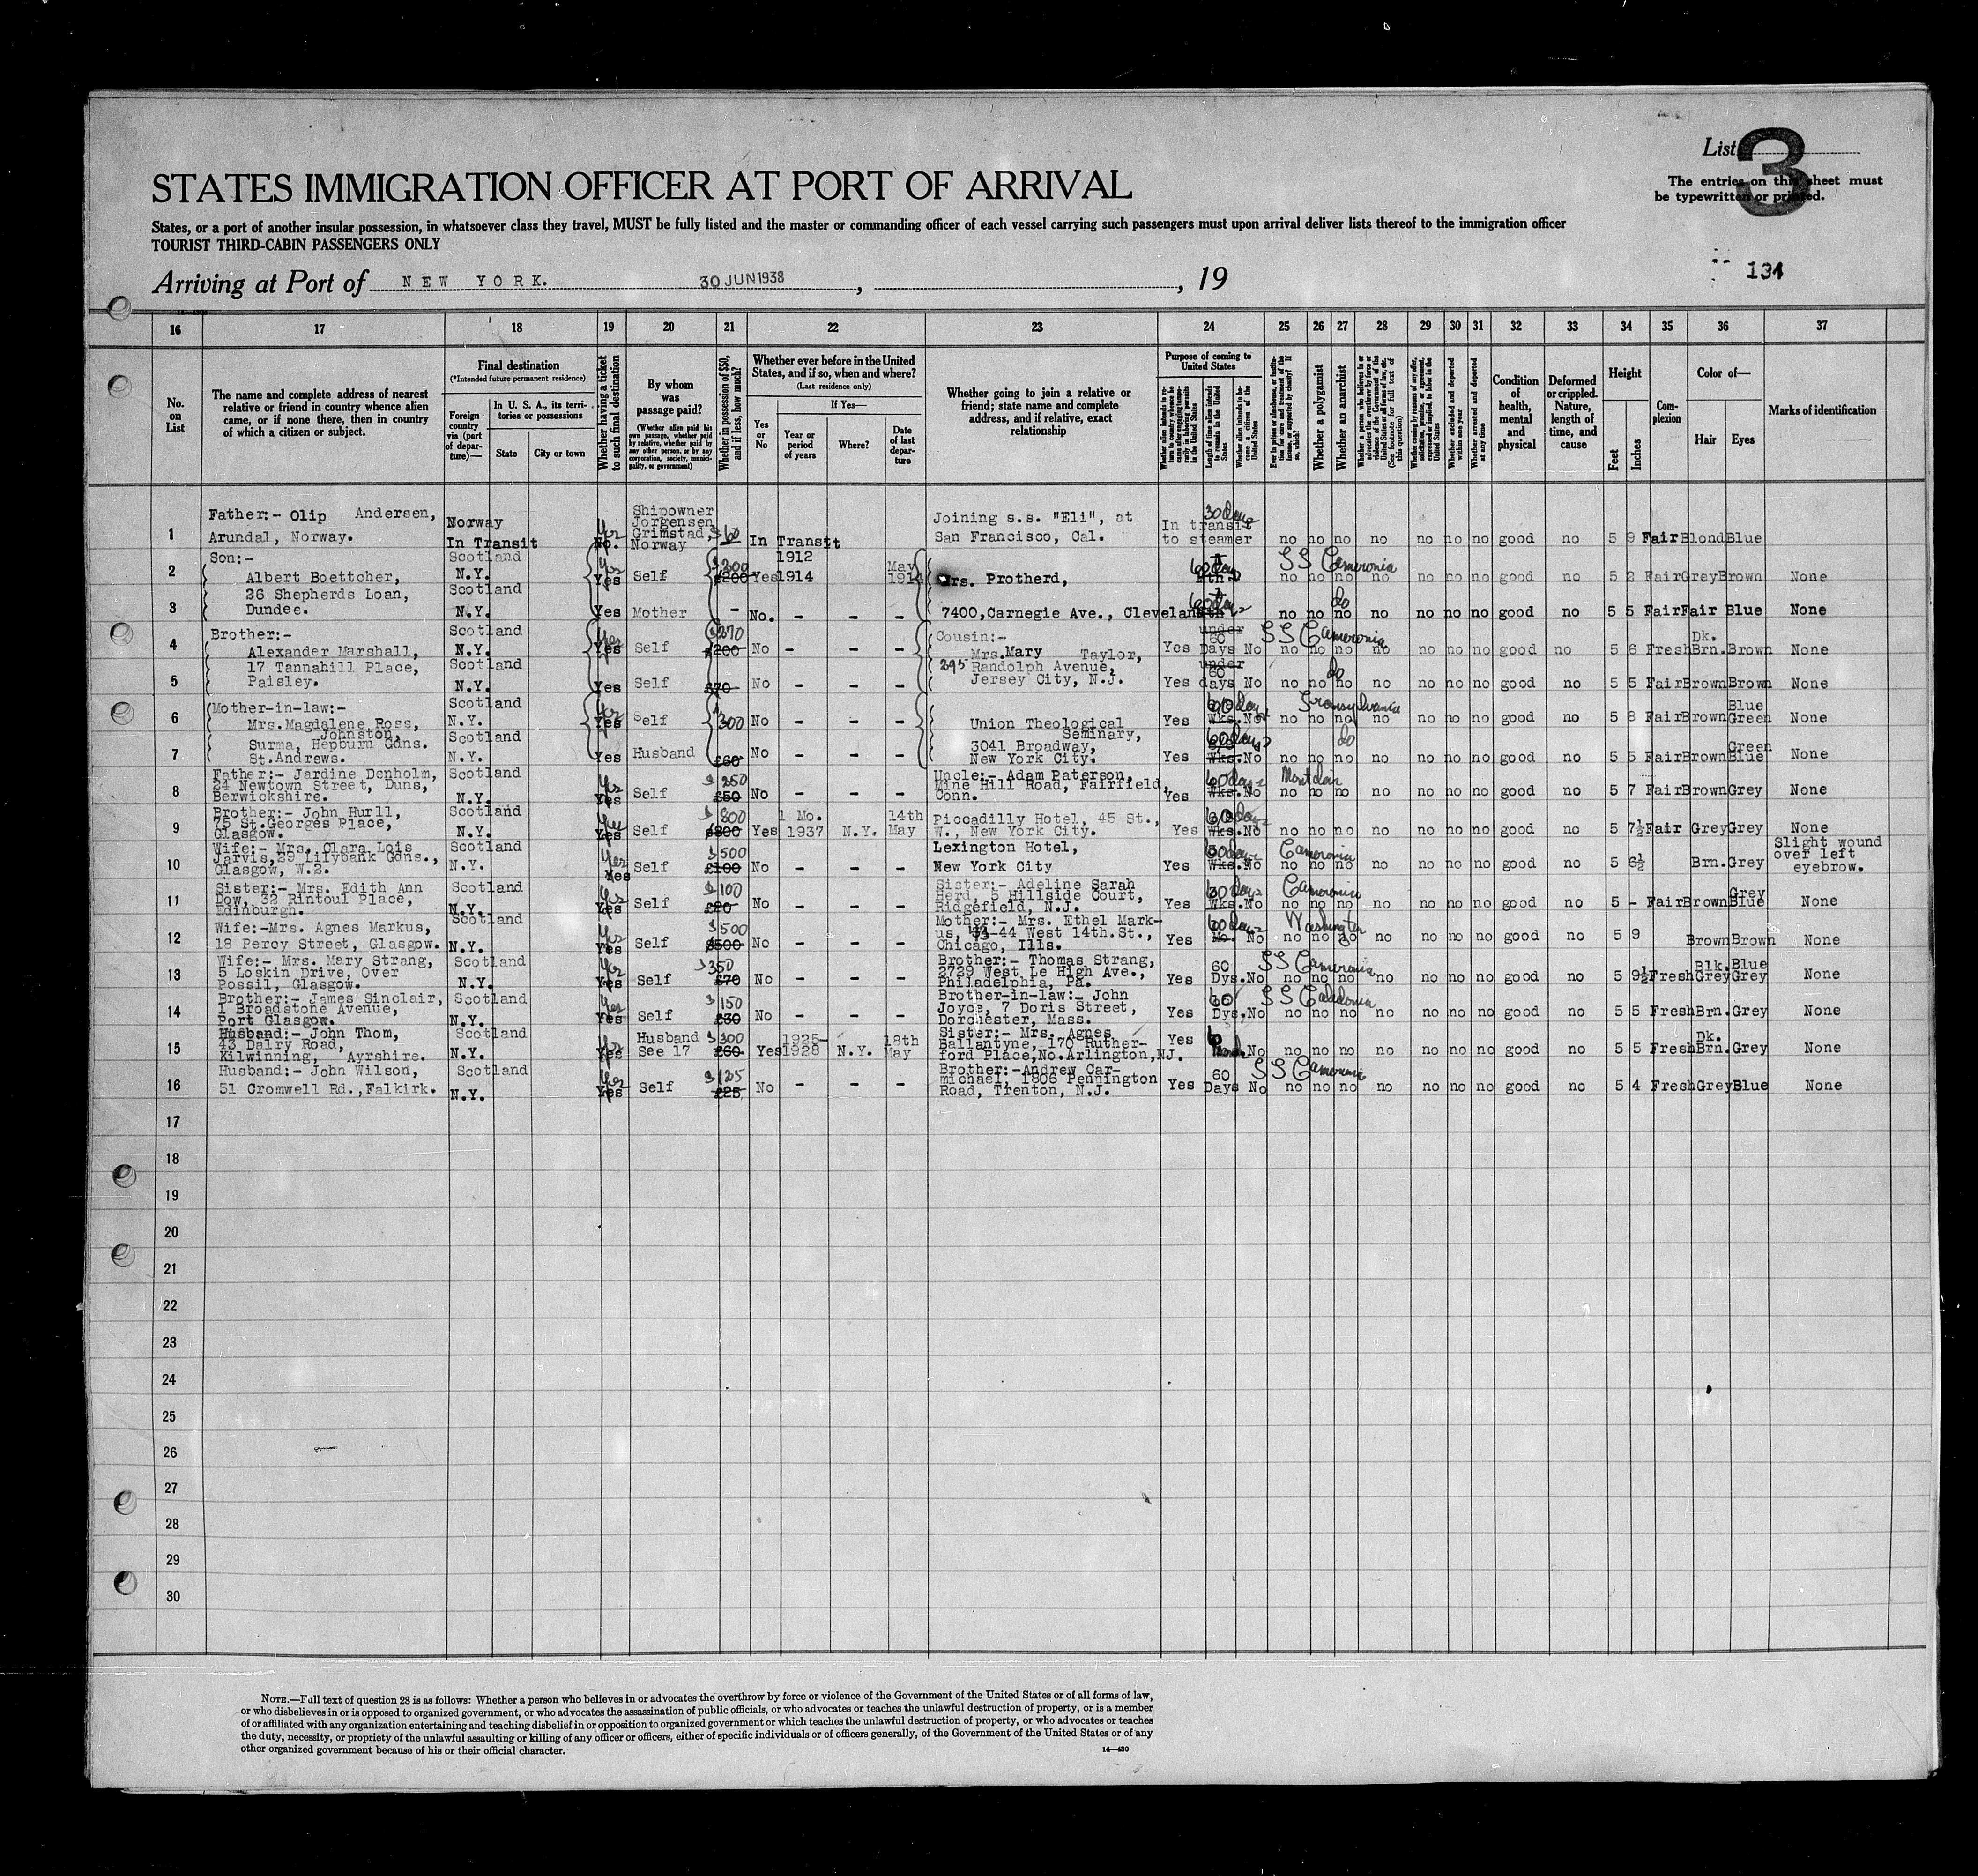 List 3
The entries on this sheet must
be typewritten or printed.
STATES IMMIGRATION OFFICER AT PORT OF ARRIVAL
States, or a port of another insular possession, in whatsoever class they travel, MUST be fully listed and the master or commanding officer of each vessel carrying such passengers must upon arrival deliver lists thereof to the immigration officer
TOURIST THIRD-CABIN PASSENGERS ONLY
Arriving at Port of NEW YORK. 30 JUN 1938, , 19
134
16 17 18 19 20 21 22 23 24 25 26 27 28 29 30 31 32 33 34 35 36 37
No. on List
The name and complete address of nearest
relative or friend in country whence alien
came, or if none there, then in country
of which a citizen or subject.
Final destination
(*Intended future permanent residence)
Foreign country via (port of departure)—
In U. S. A., its territories or possessions
State
City or town
Whether having a ticket to such final destination
By whom was passage paid?
(Whether alien paid his own passage, whether paid by relative, whether paid by any other person, or by any corporation, society, municipality, or government)
Whether in possession of $50, and if less, how much?
Whether ever before in the United
States, and if so, when and where?
(Last residence only)
If Yes—
Yes or No
Year or period of years
Where?
Date of last departure
Whether going to join a relative or
friend; state name and complete
address, and if relative, exact
relationship
Purpose of coming to United States
Whether a polygamist
Whether an anarchist
Whether excluded and deported within one year
Whether arrested and deported at any time
Condition of health, mental and physical
Deformed or crippled. Nature, length of time, and cause
Height
Feet
Inches
Complexion
Color of—
Hair
Eyes
Marks of identification
1 Father:- Olip Andersen,
Arundal, Norway.
Norway
In Transit
Yes No.
Shipowner
Jorgensen
Grimstad,
Norway
$60
In Transit
Joining s.s. "Eli", at
San Francisco, Cal.
30 days
In transit
to steamer
no no no no no no no good no 5 9 Fair Blond Blue
2 Son:-
Albert Boettcher,
Scotland
N.Y.
Yes
Yes Self $200 £200 Yes 1912
1914 May
1914
Mrs. Protherd,
60 days
SS Cameronia
no no no no no no no good no 5 2 Fair Grey Brown None
3 26 Shepherds Loan,
Dundee.
Scotland
N.Y.
Yes Mother - No. - - -
7400, Carnegie Ave., Cleveland
60 days
do
no no no no no no no good no 5 5 Fair Fair Blue None
4 Brother:-
Alexander Marshall,
Scotland
N.Y.
Yes
Yes Self $270 £200 No - - -
Cousin:-
Mrs. Mary Taylor,
Yes under
60
Days No
SS Cameronia
no no no no no no no good no 5 6 Fresh Dk.
Brn. Brown None
5 17 Tannahill Place,
Paisley.
Scotland
N.Y.
Yes Self £70 No - - -
295 Randolph Avenue,
Jersey City, N.J.
Yes under
60
days No
do
no no no no no no no good no 5 5 Fair Brown Brown None
6 Mother-in-law:-
Mrs. Magdalene Ross,
Johnston,
Scotland
N.Y.
Yes
Yes Self $300 No - - -
Union Theological
Seminary,
Yes 60 days
Wks. No
Transylvania
no no no no no no no good no 5 8 Fair Brown Blue
Green None
7 Surma, Hepburn Gdns.
St. Andrews.
Scotland
N.Y.
Yes Husband £60 No - - -
3041 Broadway,
New York City.
Yes 60 days
Wks. No
do
no no no no no no no good no 5 5 Fair Brown Green
Blue None
8 Father:- Jardine Denholm,
24 Newtown Street, Duns,
Berwickshire.
Scotland
N.Y.
Yes
Yes Self $250 £50 No - - -
Uncle:- Adam Paterson,
Mine Hill Road, Fairfield,
Conn.
Yes 60 days
Wks. No
no no no no no no no good no 5 7 Fair Brown Grey None
9 Brother:- John Hurll,
75 St. Georges Place,
Glasgow.
Scotland
N.Y.
Yes
Yes Self $800 £800 Yes 1 Mo.
1937 N.Y. 14th
May
Piccadilly Hotel, 45 St.,
W., New York City.
Yes 60 days
Wks. No
no no no no no no no good no 5 7½ Fair Grey Grey None
10 Wife:- Mrs. Clara Lois
Jarvis, 29 Lilybank Gdns.,
Glasgow, W.2.
Scotland
N.Y.
Yes
Yes Self $500 £100 No - - -
Lexington Hotel,
New York City
Yes 30 days
Wks. No
Cameronia
no no no no no no no good no 5 6½ Brn. Grey
Slight wound
over left
eyebrow.
11 Sister:- Mrs. Edith Ann
Dow, 32 Rintoul Place,
Edinburgh.
Scotland
N.Y.
Yes
Yes Self $100 £20 No - - -
Sister:- Adeline Sarah
Herd, 5 Hillside Court,
Ridgefield, N.J.
Yes 30 days
Wks. No
Cameronia
no no no no no no no good no 5 - Fair Brown Grey
Blue None
12 Wife:-Mrs. Agnes Markus,
18 Percy Street, Glasgow.
Scotland
N.Y.
Yes
Yes Self $500 £500 No - - -
Mother:- Mrs. Ethel Mark-
us, 43-44 West 14th.St.,
Chicago, Ills.
Yes 60 days
Mo. No
Washington
no no no no no no no good no 5 9 Brown Brown None
13 Wife:- Mrs. Mary Strang,
5 Loskin Drive, Over
Possil, Glasgow.
Scotland
N.Y.
Yes
Yes Self $350 £70 No - - -
Brother:- Thomas Strang,
2729 West Le High Ave.,
Philadelphia, Pa.
Yes 60
Dys. No
SS Cameronia
no no no no no no no good no 5 9½ Fresh Blk.
Grey Blue
Grey None
14 Brother:- James Sinclair,
1 Broadstone Avenue,
Port Glasgow.
Scotland
N.Y.
Yes
Yes Self $150 £30 No - - -
Brother-in-law:- John
Joyce, 7 Doris Street,
Dorchester, Mass.
Yes 60
Dys. No
SS Caledonia
no no no no no no no good no 5 5 Fresh Brn. Grey None
15 Husband:- John Thom,
43 Dalry Road,
Kilwinning, Ayrshire.
Scotland
N.Y.
Yes
Yes Husband
See 17 $300 £60 Yes 1925-
1928 N.Y. 18th
May
Sister:- Mrs. Agnes
Ballantyne, 170 Ruther-
ford Place, No. Arlington, NJ.
Yes No
no no no no no no no good no 5 5 Fresh Dk.
Brn. Grey None
16 Husband:- John Wilson,
51 Cromwell Rd., Falkirk.
Scotland
N.Y.
Yes
Yes Self $125 £25 No - - -
Brother:-Andrew Car-
michael, 1806 Pennington
Road, Trenton, N.J.
Yes 60
Days No
SS Cameronia
no no no no no no no good no 5 4 Fresh Grey Blue None
17
18
19
20
21
22
23
24
25
26
27
28
29
30
NOTE.—Full text of question 28 is as follows: Whether a person who believes in or advocates the overthrow by force or violence of the Government of the United States or of all forms of law,
or who disbelieves in or is opposed to organized government, or who advocates the assassination of public officials, or who advocates or teaches the unlawful destruction of property, or is a member
of or affiliated with any organization entertaining and teaching disbelief in or opposition to organized government or which teaches the unlawful destruction of property, or who advocates or teaches
the duty, necessity, or propriety of the unlawful assaulting or killing of any officer or officers, either of specific individuals or of officers generally, of the Government of the United States or of any
other organized government because of his or their official character.
14—430